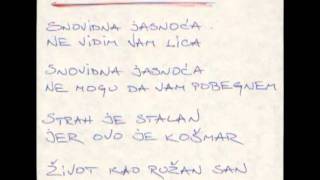 SNOVIDNA JASNOĆA.
NE VIDIM VAM LICA
SNOVIDNA JASNOĆA
NE MOGU DA VAM POBEGNEM
STRAH JE STALAN
JER OVO JE KOŠMAR
ŽIVOT KAO RUŽAN SAN